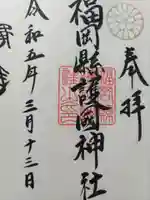 奉拝
福岡縣護國神社
令和五年三月十三日